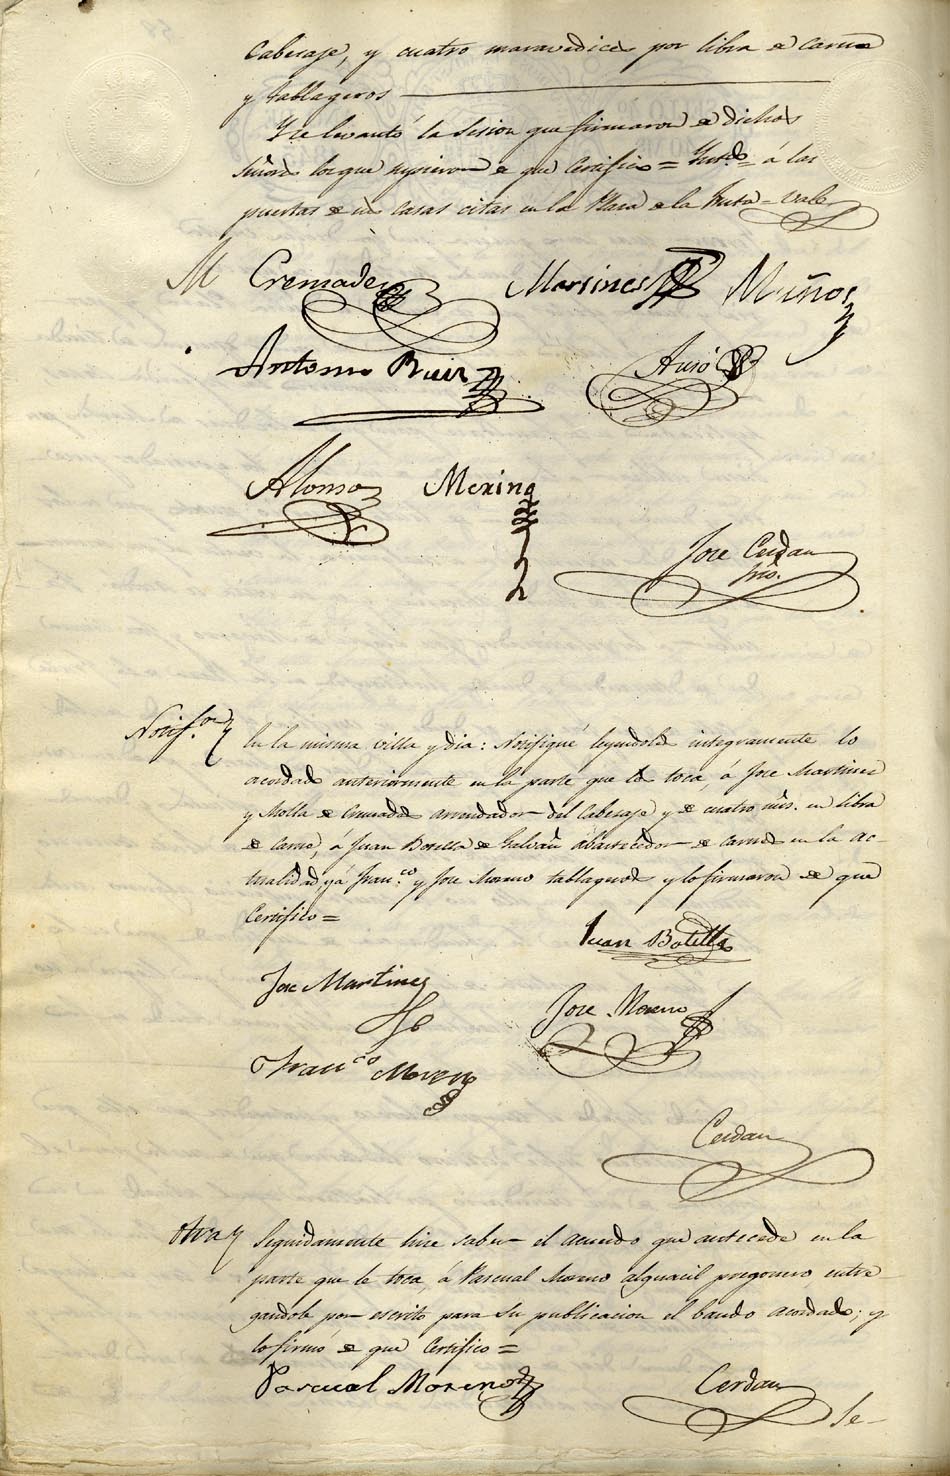 Cabesaje, y cuatro maravedices por libra de carne
y tablageros
Y se levantó la Sesion que firmaron de dichos
Señores los que supieron de que Certifico = á las
puertas de sus casas citas en la Plaza de la Fruta = Vale
M Cremades Martines Muñoz
Antonio Ruiz Ausó
Alonso Merino
Jose Cerdan
Srio.
Notif.on En la misma villa y dia: Notifiqué leyendoles integramente lo
acordado anteriormente en la parte que les toca, á Jose Martinez
y Molla de Cremades arrendador del Cabesaje y de cuatro mrs. en libra
de carne, á Juan Botella de Galvañ abastecedor de carnes en la ac-
tualidad, y á Fran.co y Jose Moreno tablageros y lo firmaron de que
Certifico =
Juan Botella
Jose Martinez
Jose Moreno
Fran.co Moreno
Cerdan
Otra Seguidamente hice saber el acuerdo que antecede en la
parte que le toca, á Pascual Moreno alguacil pregonero entre-
gandole por escrito para su publicacion el bando acordado; y
lo firmó de que Certifico =
Pascual Moreno Cerdan
Se-